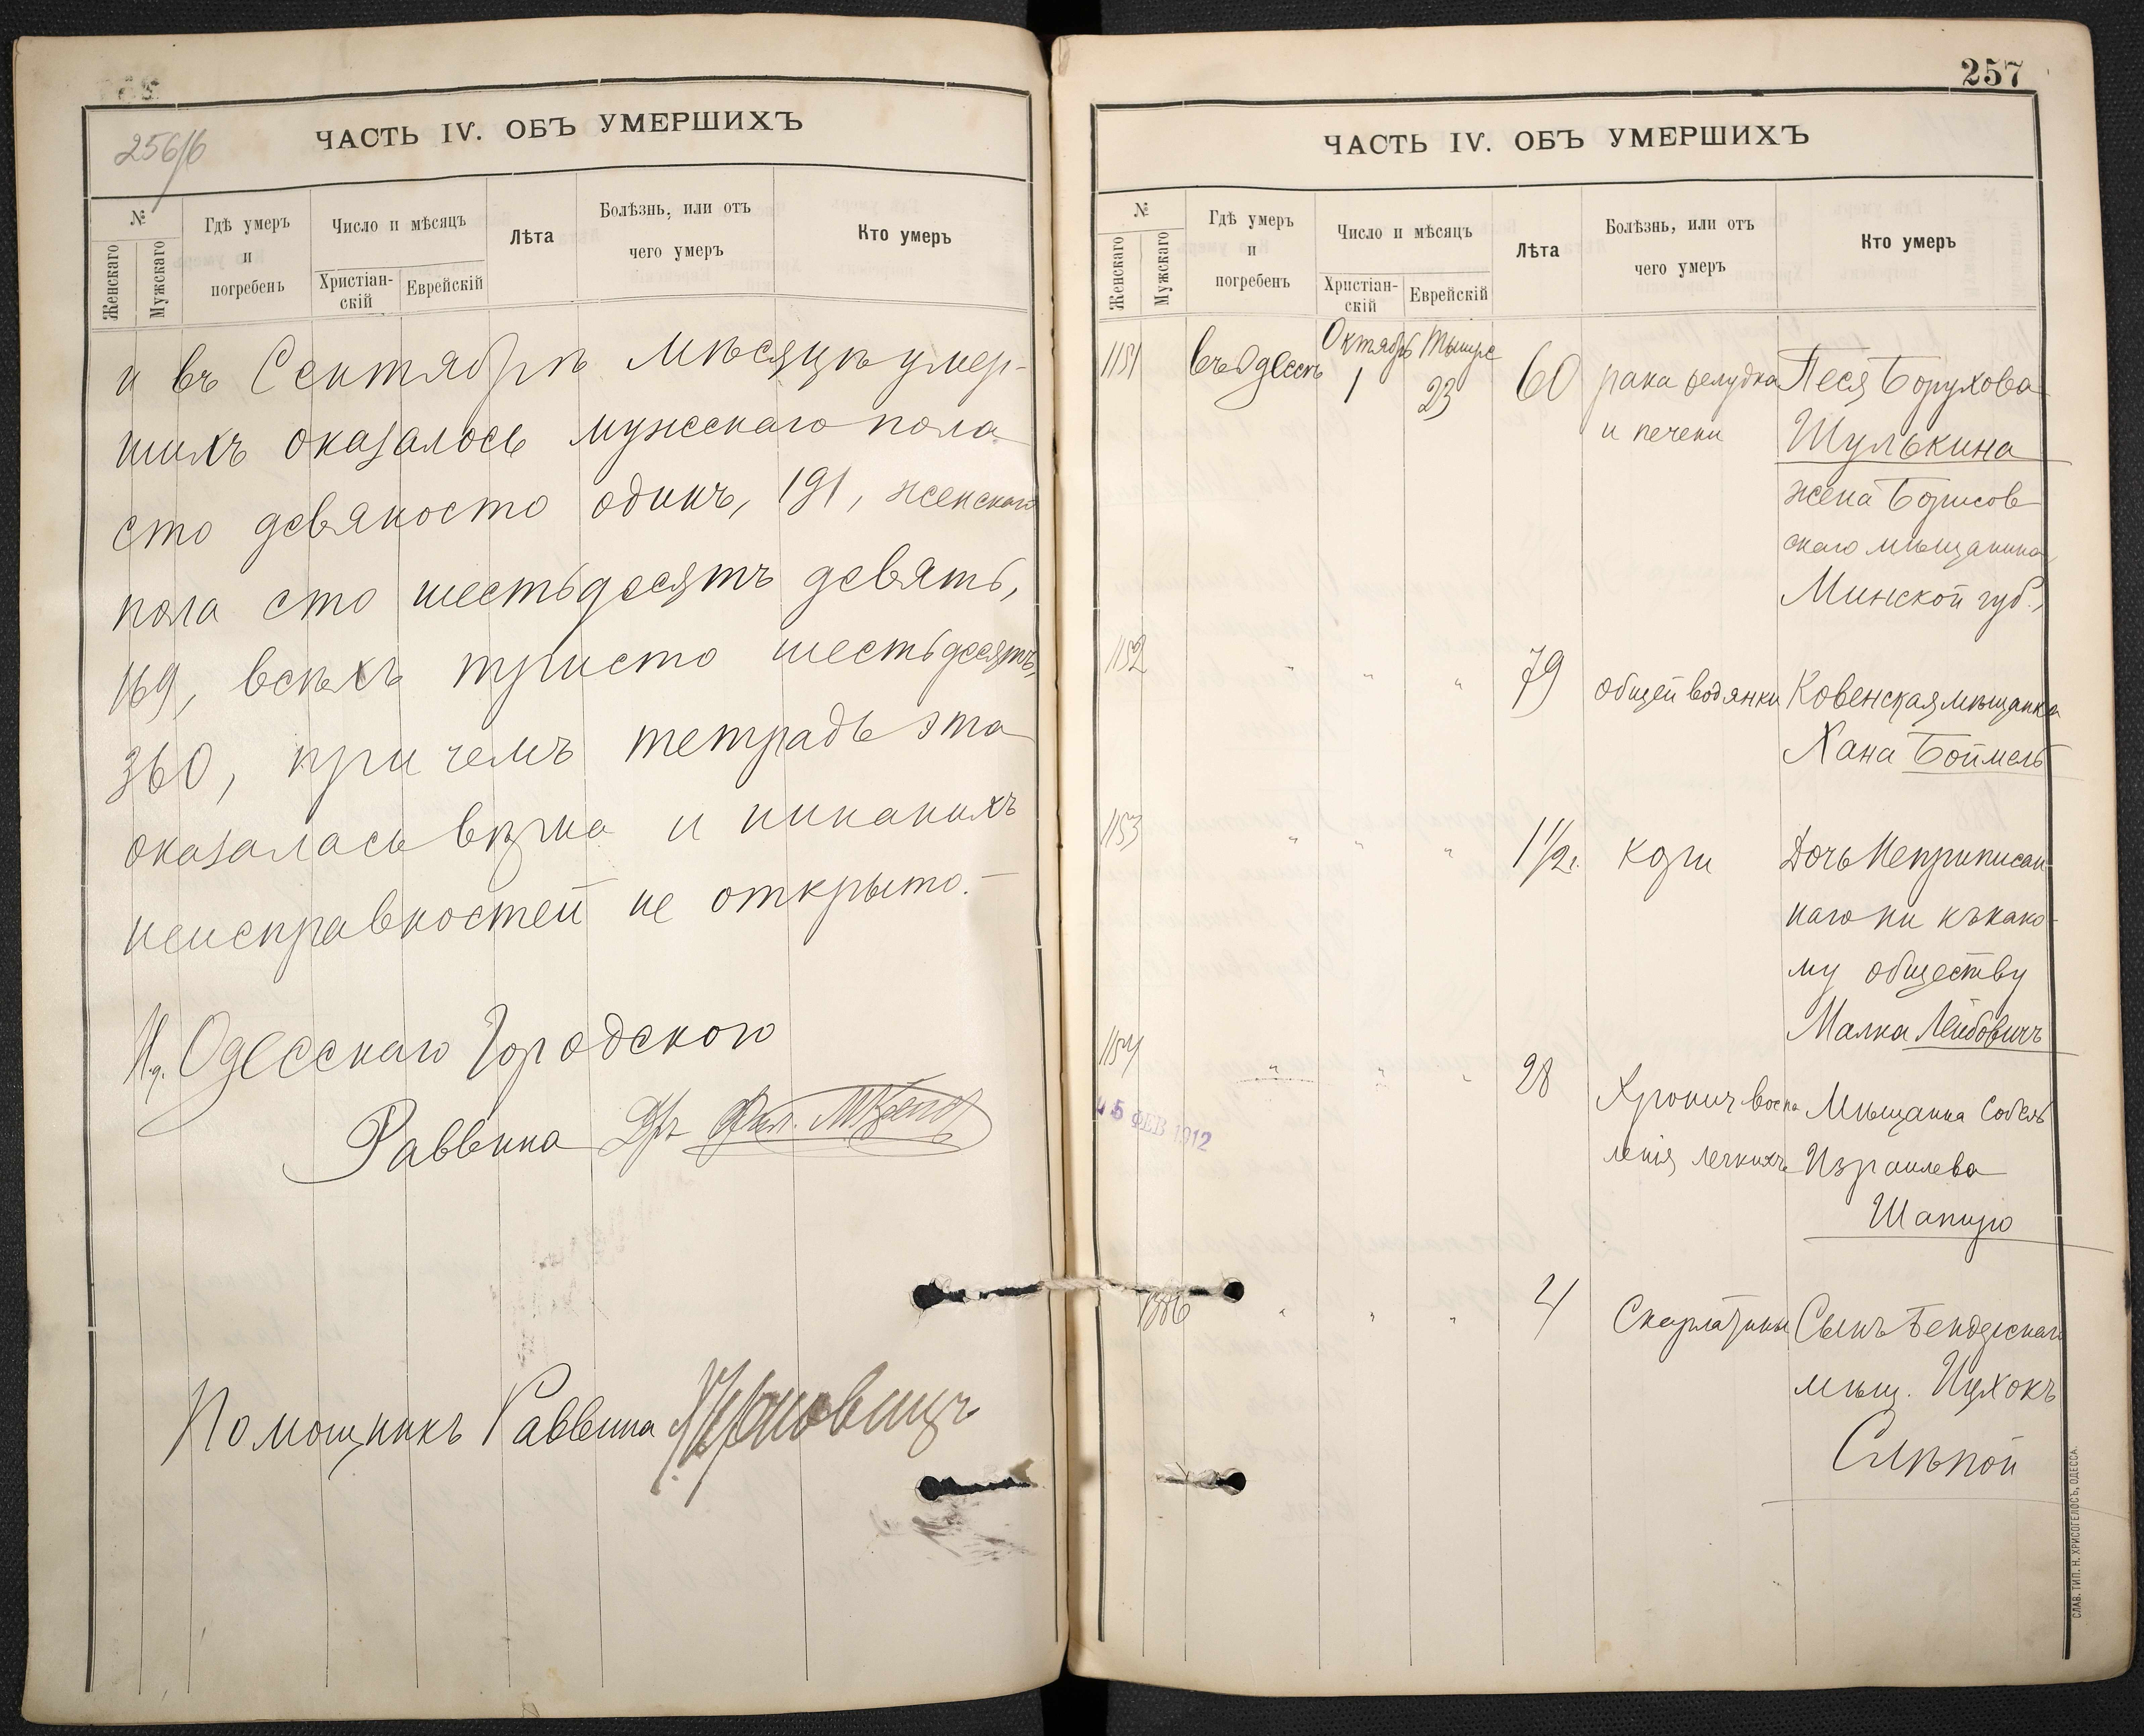 256/б
ЧАСТЬ IV. ОБЪ УМЕРШИХЪ
№
Женскаго
Мужскаго
Гдѣ умеръ
и
погребенъ
Число и мѣсяцъ
Христіан-
скій
Еврейскій
Лѣта
Болѣзнь, или отъ
чего умеръ
Кто умеръ
и въ Сентябрѣ мѣсяцѣ умер-
шихъ оказалось мужескаго пола
сто девяносто одинъ, 191, женскаго
пола сто шестьдесятъ девять,
169, всѣхъ триста шестьдесятъ,
360, при чемъ тетрадь эта
оказалась вѣрна и никакихъ
неисправностей не открыто.-
И.д. Одесскаго Городского
Раввина Др
Помощникъ Раввина
257
ЧАСТЬ IV. ОБЪ УМЕРШИХЪ
№
Женскаго
Мужскаго
Гдѣ умеръ
и
погребенъ
Число и мѣсяцъ
Христіан-
скій
Еврейскій
Лѣта
Болѣзнь, или отъ
чего умеръ
Кто умеръ
1151 въ Одессѣ Октябрь 1 Тишре 23 60 рака желудка Песя Борухова
и печени Шулькина
жена Борисов
скаго мѣщанина
Минской губ.,
1152 " " " 79 общей водянки Ковенская мѣщанка
Хана Боймель
1153 " " " 1 1/2 г. кори Дочь Неприписан-
наго ни къ како-
му обществу
Малка Лейбовичъ
1154 " " " 28 Хронич воспа Мѣщанка Собель
ленія легкихъ Израилева
Шапиро
15 ФЕВ 1912
1386 " " " 4 Скарлатины Сынъ Бендерскаго
мѣщ. Ицхокъ
Слѣпой
СЛАВ. ТИП. Н. ХРИСОГЕЛОСЪ, ОДЕССА.